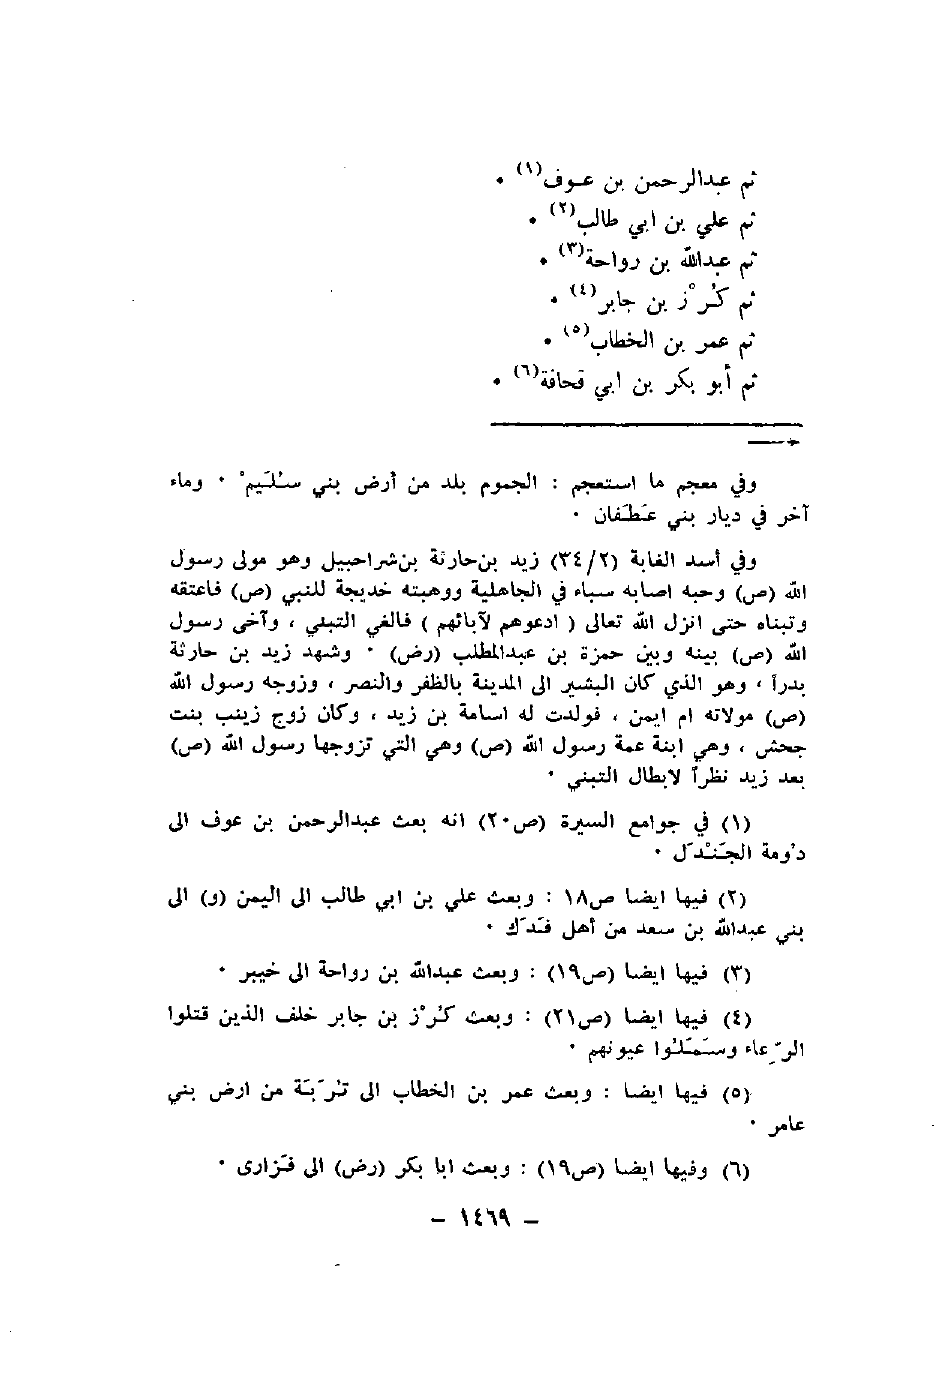 ثم عبدالرحمن بن عوف(١) •
ثم علي بن ابي طالب(٢) •
ثم عبدالله بن رواحة(٣) •
ثم كُرْز بن جابر(٤) •
ثم عمر بن الخطاب(٥) •
ثم أبو بكر بن ابي قحافة(٦) •
وفي معجم ما استعجم : الجموم بلد من أرض بني سُلَيم • وماء
آخر في ديار بني غَطَفان •
وفي أسد الغابة (٣٤/٢) زيد بن حارثة بن شراحبيل وهو مولى رسول
الله (ص) وحبه اصابه سباء في الجاهلية ووهبته خديجة للنبي (ص) فاعتقه
وتبناه حتى انزل الله تعالى ( ادعوهم لآبائهم ) فالغي التبني ، وآخى رسول
الله (ص) بينه وبين حمزة بن عبدالمطلب (رض) • وشهد زيد بن حارثة
بدرآ ، وهو الذي كان البشير الى المدينة بالظفر والنصر ، وزوجه رسول الله
(ص) مولاته ام ايمن ، فولدت له اسامة بن زيد ، وكان زوج زينب بنت
جحش ، وهي ابنة عمة رسول الله (ص) وهي التي تزوجها رسول الله (ص)
بعد زيد نظرآ لابطال التبني •
(١) في جوامع السيرة (ص٢٠) انه بعث عبدالرحمن بن عوف الى
دُومة الجَنْدَل •
(٢) فيها ايضا ص١٨ : وبعث علي بن ابي طالب الى اليمن (و) الى
بني عبدالله بن سعد من أهل فَدَك •
(٣) فيها ايضا (ص١٩) : وبعث عبدالله بن رواحة الى خيبر •
(٤) فيها ايضا (ص٢١) : وبعث كُرْز بن جابر خلف الذين قتلوا
الرِّعاء وسَمَلُوا عيونهم •
(٥) فيها ايضا : وبعث عمر بن الخطاب الى تُرَبَة من ارض بني
عامر •
(٦) وفيها ايضا (ص١٩) : وبعث ابا بكر (رض) الى فَزارى •
– ١٤٦٩ –